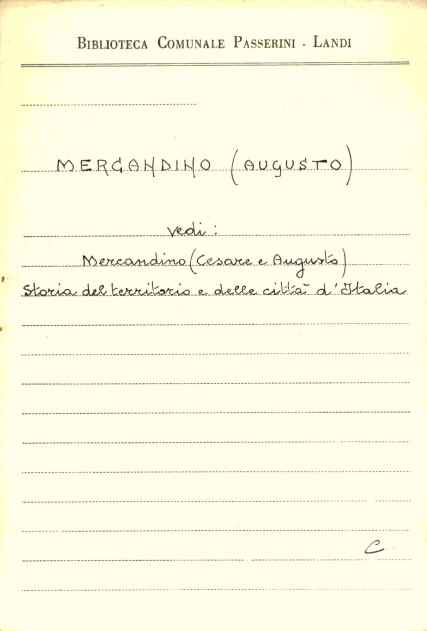 BIBLIOTECA COMUNALE PASSERINI - LANDI
MERCANDINO (AUGUSTO)
vedi:
Mercandino (Cesare e Augusto)
Storia del territorio e delle città d'Italia
C